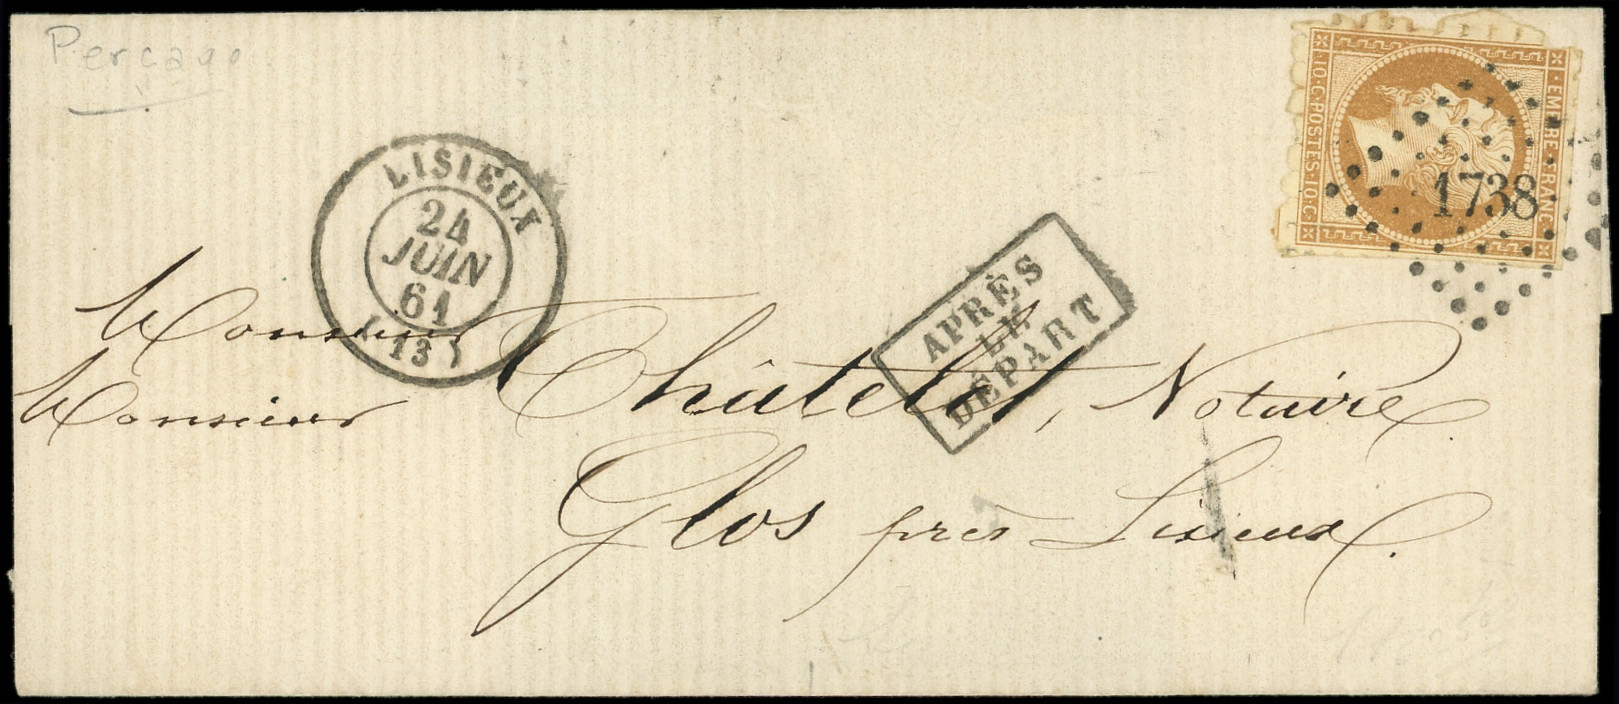 Perçage
LISIEUX
24
JUIN
61
(13)
EMPIRE·FRANC
10·C·POSTES·10·C·
1738
APRÈS
LE
DÉPART
Monsieur
Monsieur Châtelet, Notaire
Glos près Lisieux.